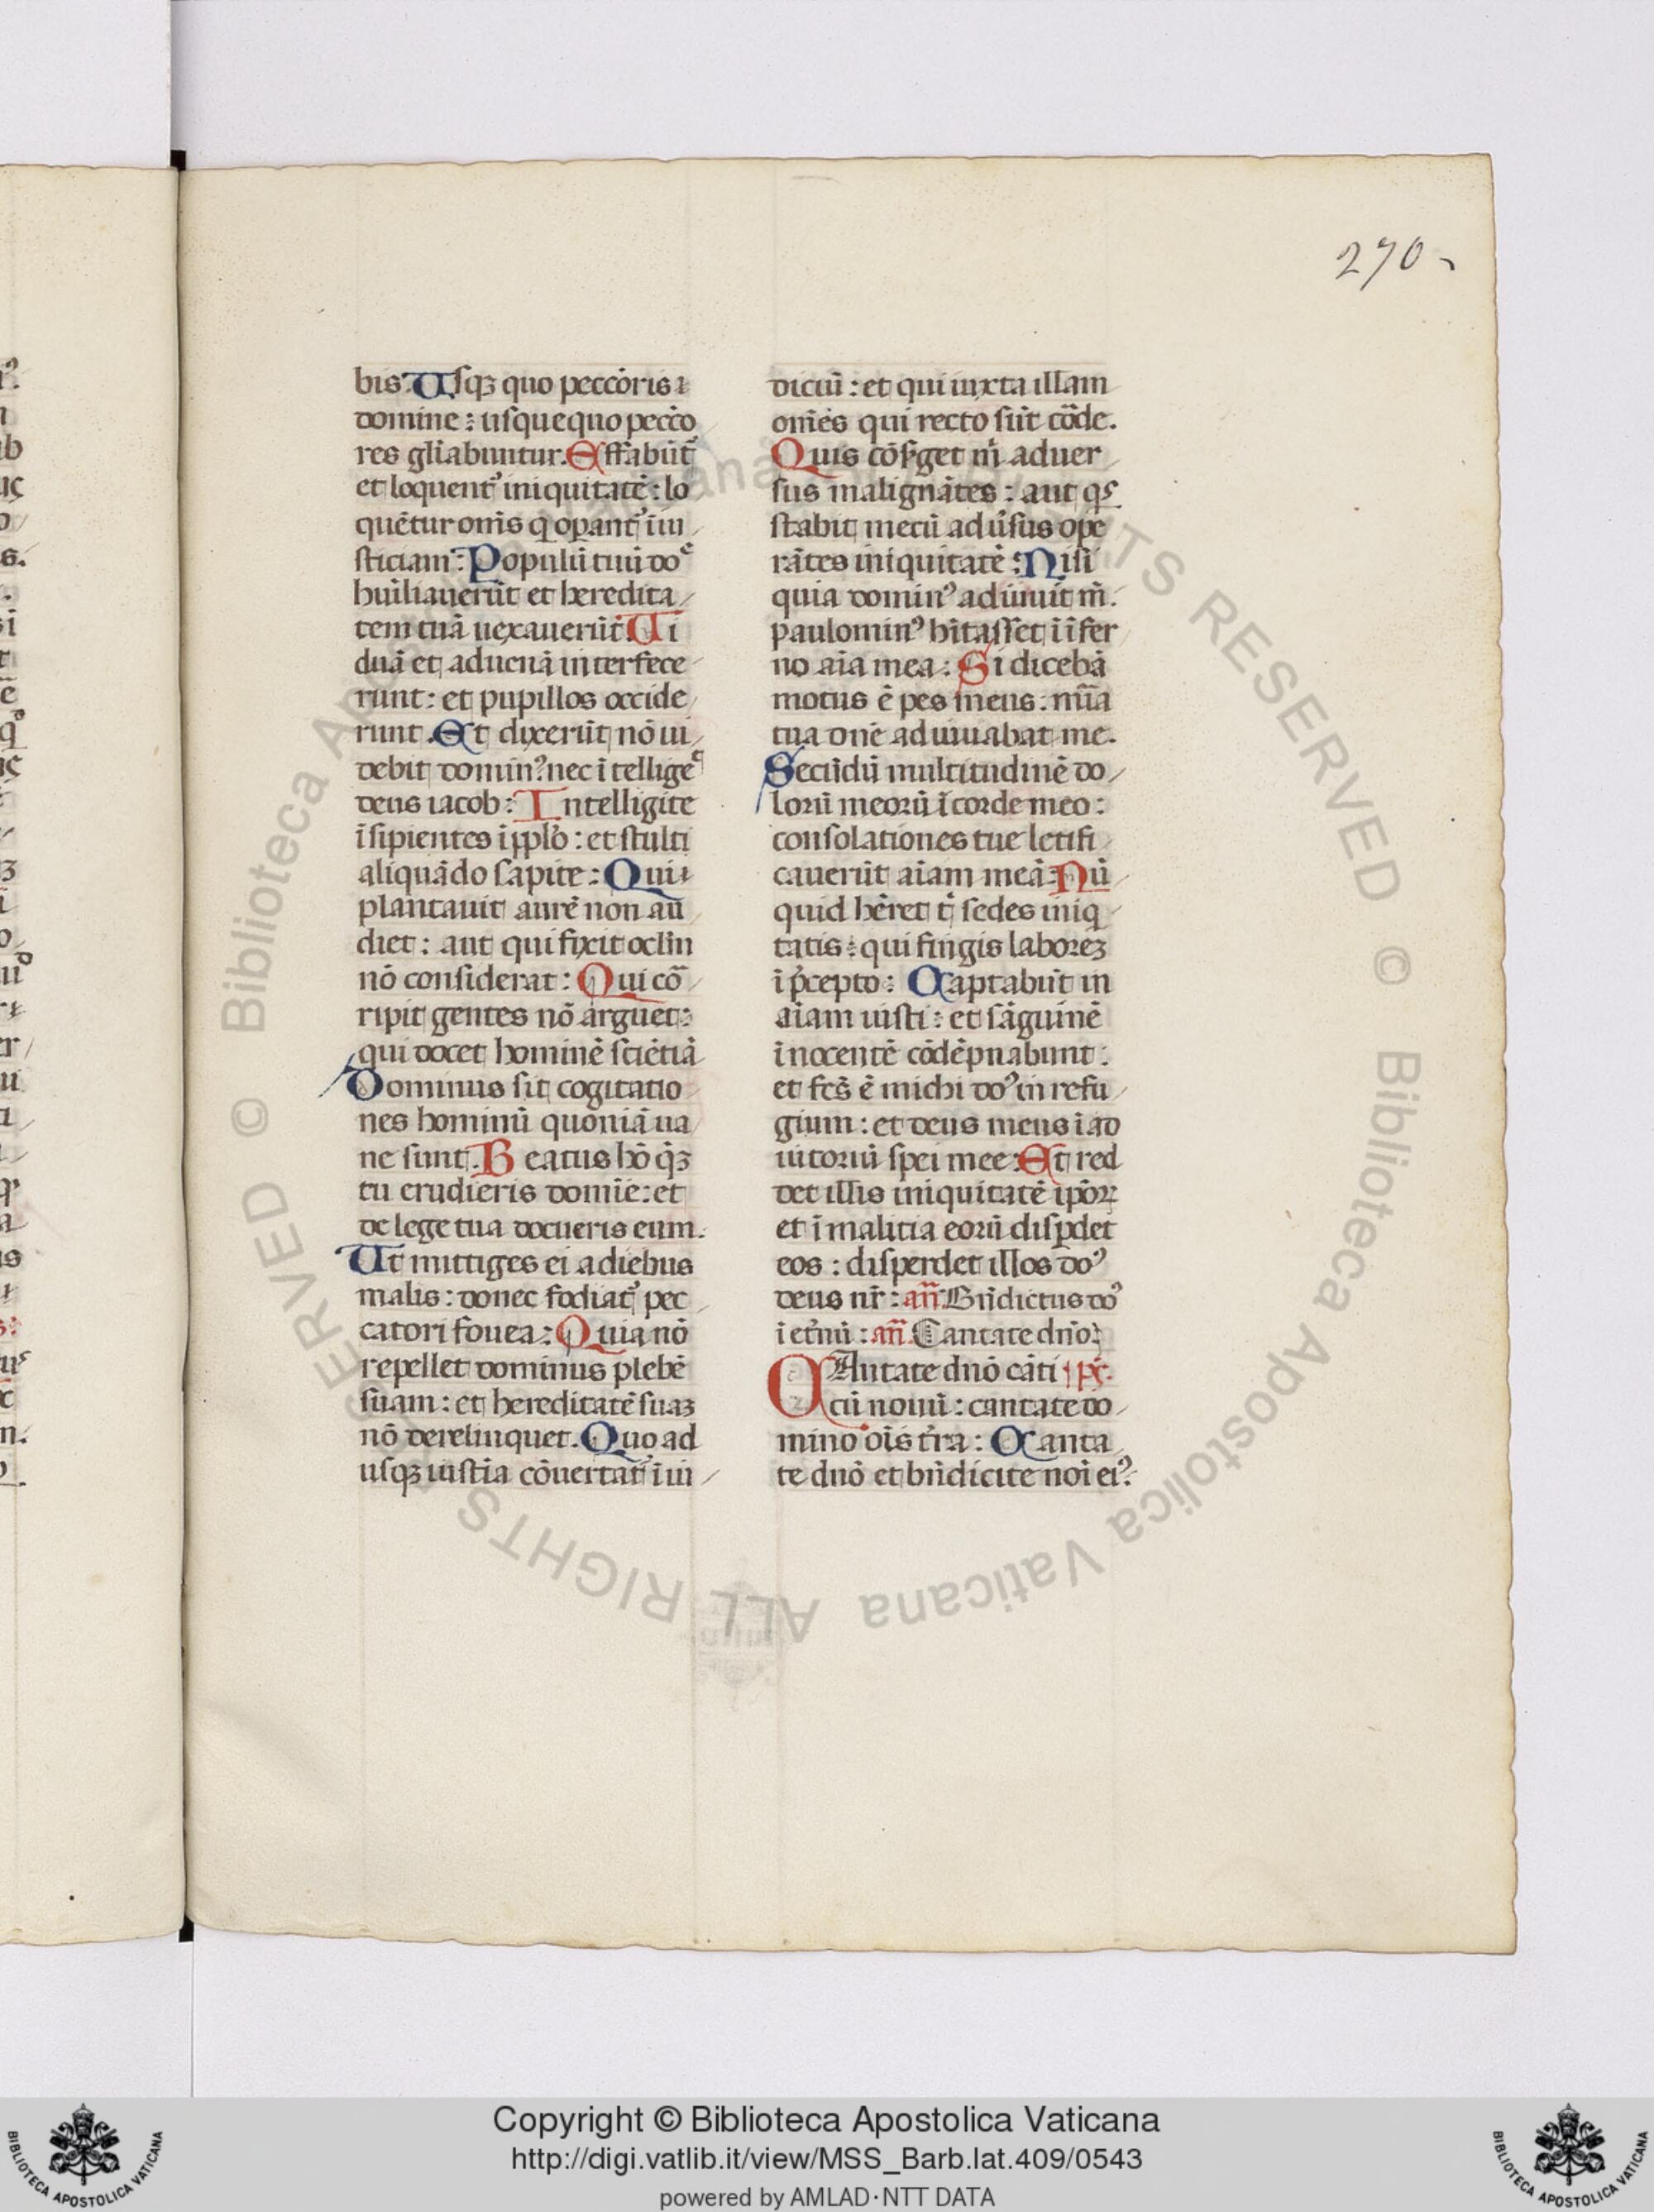 270
bis. Usqꝫ quo peccōris
domine: usquequo pecco
res glīabuntur. Effabūt᷑
et loquent᷑ iniquitatē: lo
quētur om̄s q̇ oꝑant᷑ īiu
sticiam: Populū tuū do᷑
hūiliauerūt et heredita
tem tuā uexauerūt: Ui
duā et aduenā interfece
runt: et pupillos occide
runt. Et dixerūt nō ui
debit domin᷒ nec ītellige
deus iacob: Intelligite
īsipientes ī pplo: et stulti
aliquādo sapite: Qui
plantauit aurē non au
diet: aut qui fixit oclm
nō considerat: Qui cō
ripit gentes nō arguet:
qui docet hominē sciētiā
Dominus sit cogitatio
nes hominū quoniā ua
ne sunt. Beatus hō q̄ꝫ
tu erudieris domīe: et
de lege tua docueris eum.
Ut mittiges ei a diebus
malis: donec fodiat᷑ pec
catori fouea: Quia nō
repellet dominus plebē
suam: et hereditatē suaꝫ
nō derelinquet. Quo ad
usqꝫ iustīa cōuertat᷑ ī iu
diciū: et qui iuxta illam
om̄es qui recto sūt cōde.
Quis cōsꝰget m̄ aduer
sus malignātes: aut qͥs
stabit mecū adūsus ope
rātes iniquitatē: Nisi
quia domin᷒ adiuuit m̄.
paulomin᷒ hītasset ī īfer
no aīa mea: Si dicebā
motus ē pes meus: mīa
tua dn̄e adiuuabat me.
Secūdū multitudinē do
lorū meorū ī corde meo:
consolationes tue letifi
cauerūt aīam meā: Nū
quid hēret tͥ sedes iniq
tatis: qui fingis laboreꝫ
ī p̄cepto: Captabūt in
aīam iusti: et sāguinē
īnocentē cōdēpnabunt:
et fcs̄ ē michi do᷒ in refu
gium: et deus meus ī ad
iutoriū spei mee: Et red
det illis iniquitatē ip̄oꝝ
et ī malicia eorū disꝑdet
eos: disperdet illos do᷒
deus nr̄: an̄. Bn̄dictus do᷒
ī et̄nū: an̄. Cantate dn̄o:
CAntate dnō cāti ps̄.
cū nouū: cantate do
mino oīs t̄ra: Canta
te dnō et bn̄dicite noī ei᷒:
Copyright © Biblioteca Apostolica Vaticana
http://digi.vatlib.it/view/MSS_Barb.lat.409/0543
powered by AMLAD·NTT DATA
BIBLIOTECA APOSTOLICA VATICANA
BIBLIOTECA APOSTOLICA VATICANA